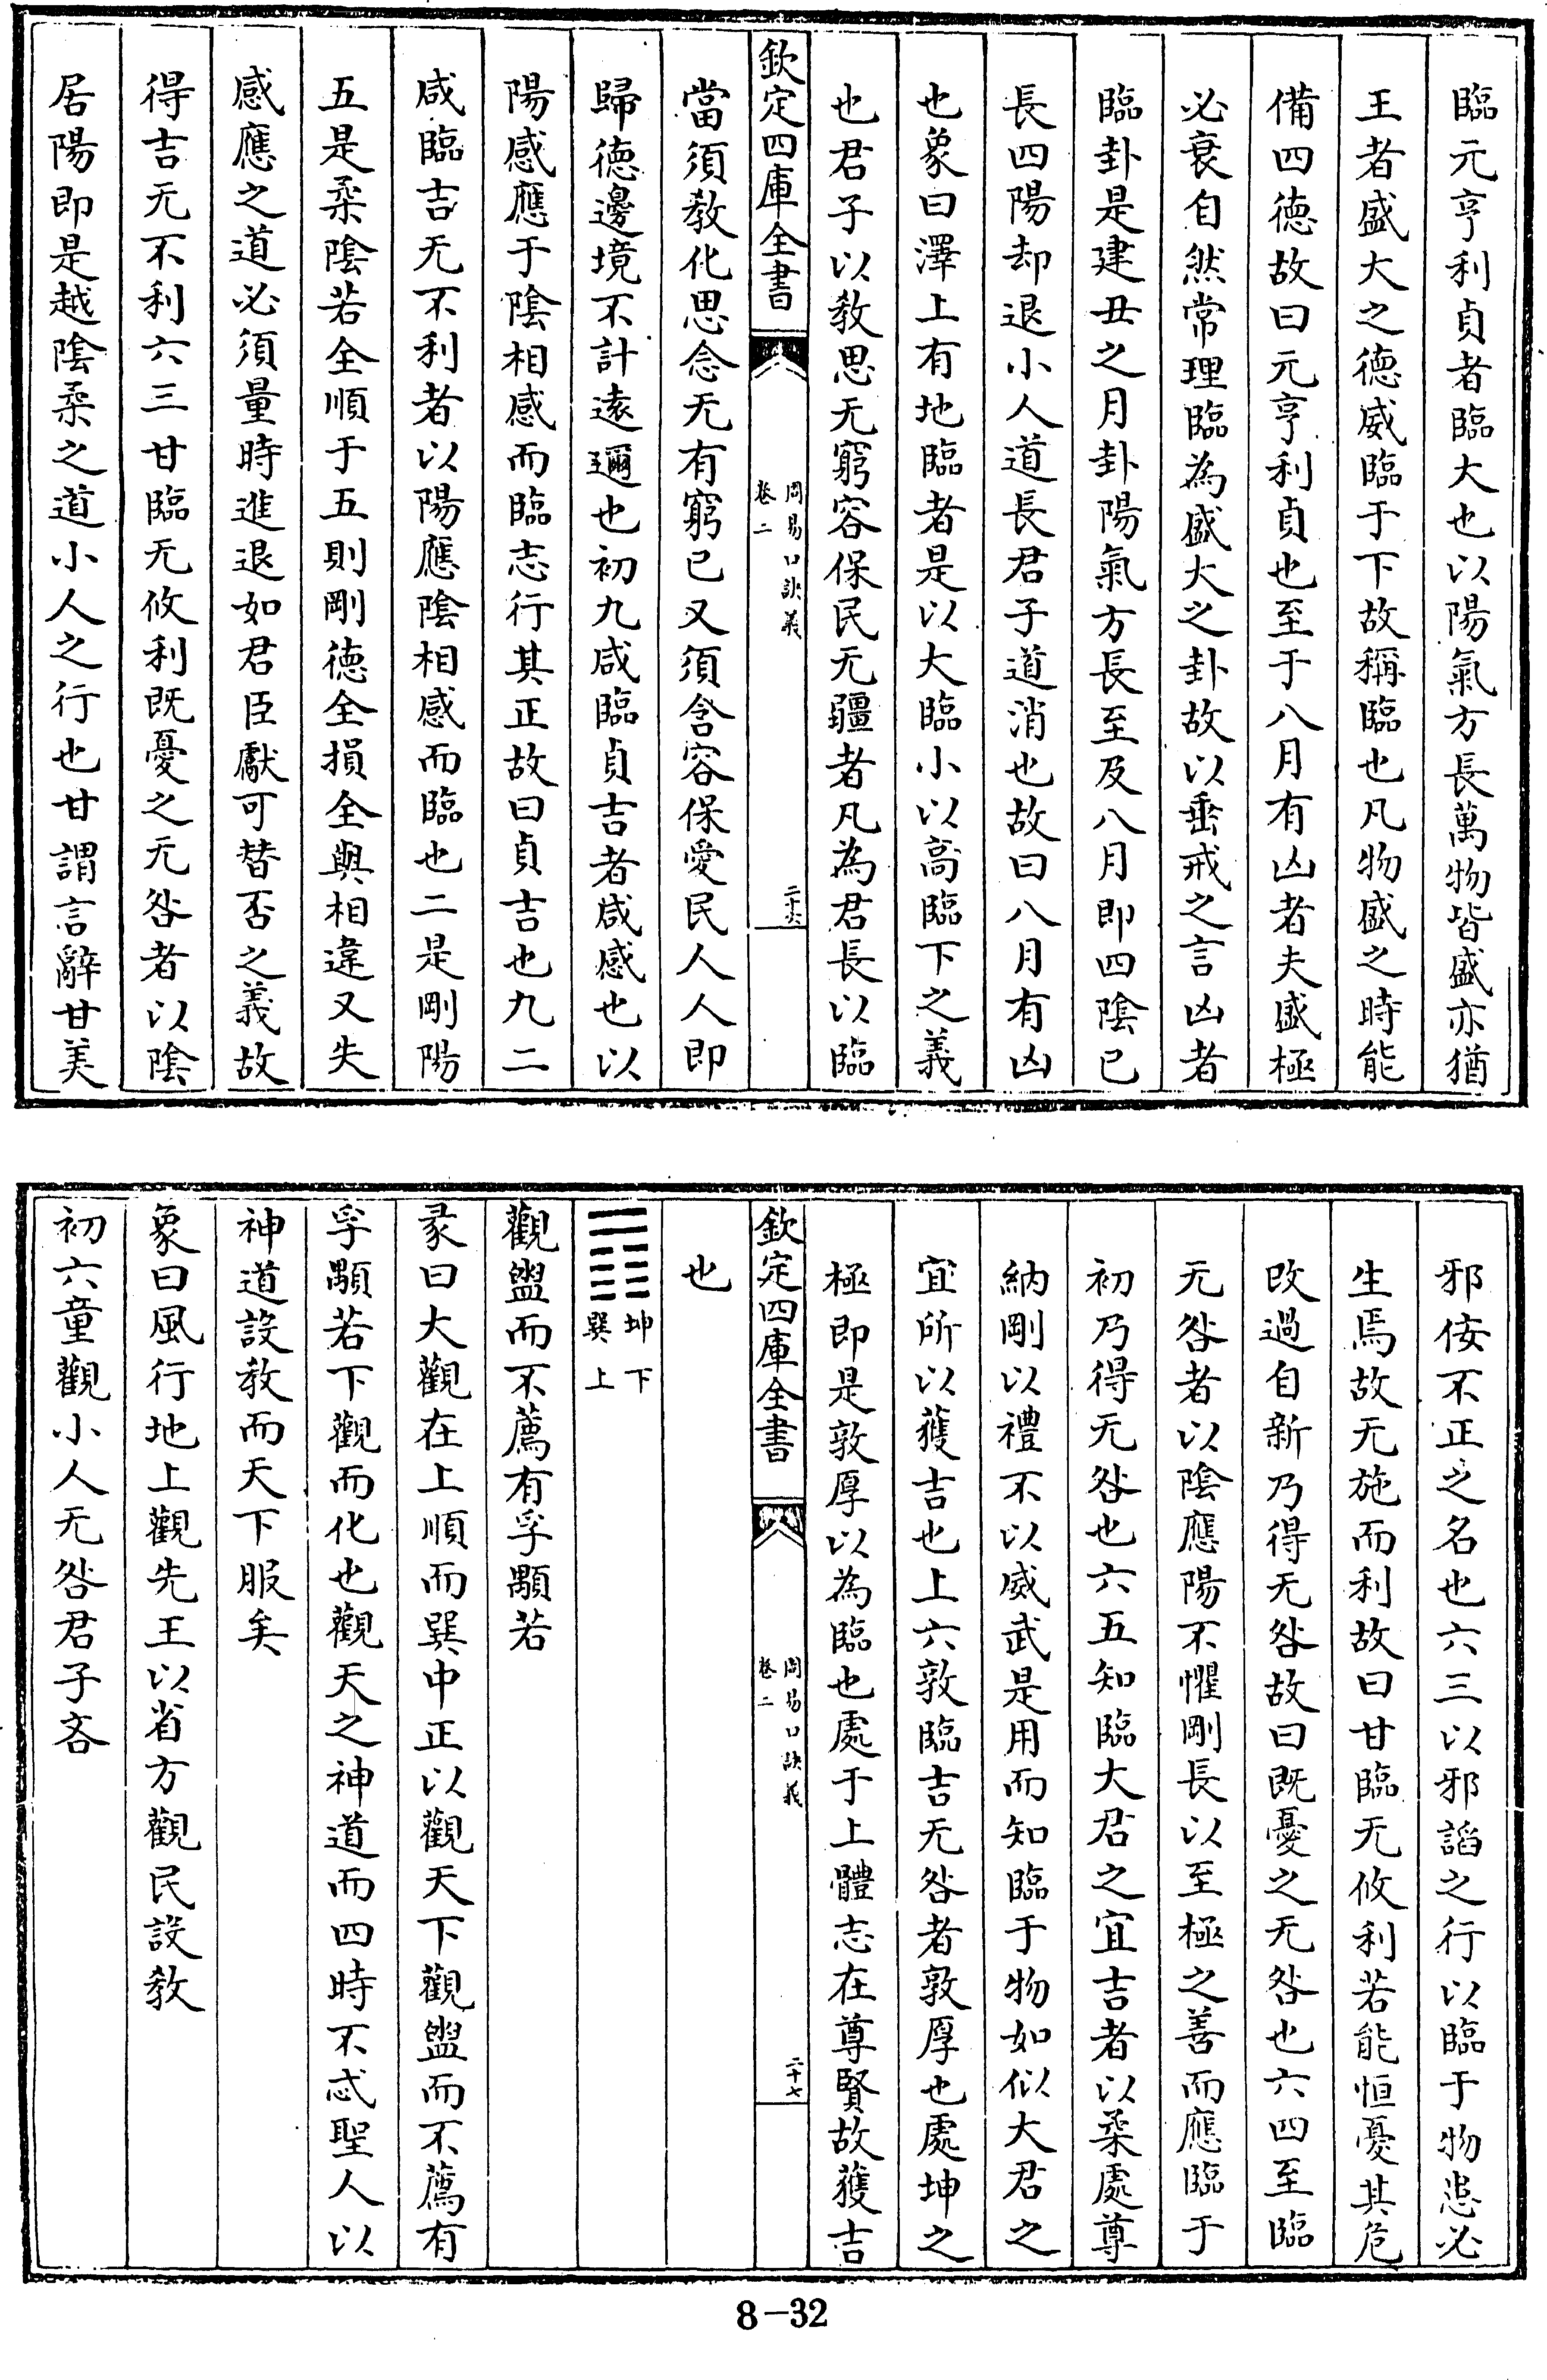 臨元亨利貞者臨大也以陽氣方長萬物皆盛亦猶
王者盛大之德威臨于下故稱臨也凡物盛之時能
備四徳故曰元亨利貞也至于八月有凶者夫盛極
必衰自然常理臨為盛大之卦故以垂戒之言凶者
臨卦是建丑之月卦陽氣方長至及八月即四陰已
長四陽却退小人道長君子道消也故曰八月有凶
也象曰澤上有地臨者是以大臨小以高臨下之義
也君子以教思无窮容保民无疆者凡為君長以臨
欽定四庫全書
周易口訣義
卷二
二十六
當須教化思念无有窮已又須含容保愛民人人即
歸徳邊境不計逺邇也初九咸臨貞吉者咸感也以
陽感應于陰相感而臨志行其正故曰貞吉也九二
咸臨吉无不利者以陽應陰相感而臨也二是剛陽
五是柔陰若全順于五則剛德全損全與相違又失
感應之道必須量時進退如君臣獻可替否之義故
得吉无不利六三甘臨无攸利既憂之无咎者以陰
居陽即是越陰柔之道小人之行也甘謂言辭甘美
邪佞不正之名也六三以邪謟之行以臨于物患必
生焉故无施而利故曰甘臨无攸利若能恒憂其危
改過自新乃得无咎故曰既憂之无咎也六四至臨
无咎者以陰應陽不懼剛長以至極之善而應臨于
初乃得无咎也六五知臨大君之宜吉者以柔處尊
納剛以禮不以威武是用而知臨于物如似大君之
宜所以獲吉也上六敦臨吉无咎者敦厚也處坤之
極即是敦厚以為臨也處于上體志在尊賢故獲吉
欽定四庫全書
周易口訣義
卷二
二十七
也
坤下
巽上
觀盥而不薦有孚顒若
彖曰大觀在上順而巽中正以觀天下觀盥而不薦有
孚顒若下觀而化也觀天之神道而四時不忒聖人以
神道設教而天下服矣
象曰風行地上觀先王以省方觀民設教
初六童觀小人无咎君子吝
8-32